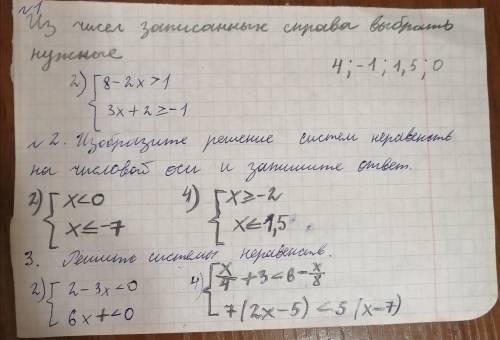 №1
Из чисел записанных справа выбрать
нужные
4; -1; 1,5; 0
2) { 8-2x>1
3x+2≥-1
№2. Изобразите решение систем неравенств
на числовой оси и запишите ответ.
2) { x<0
x≤-7
4) { x≥-2
x≤1,5
3. Решите системы неравенств.
2) { 2-3x<0
6x+<0
4) { x/4+3<6-x/8
7(2x-5)<5(x-7)